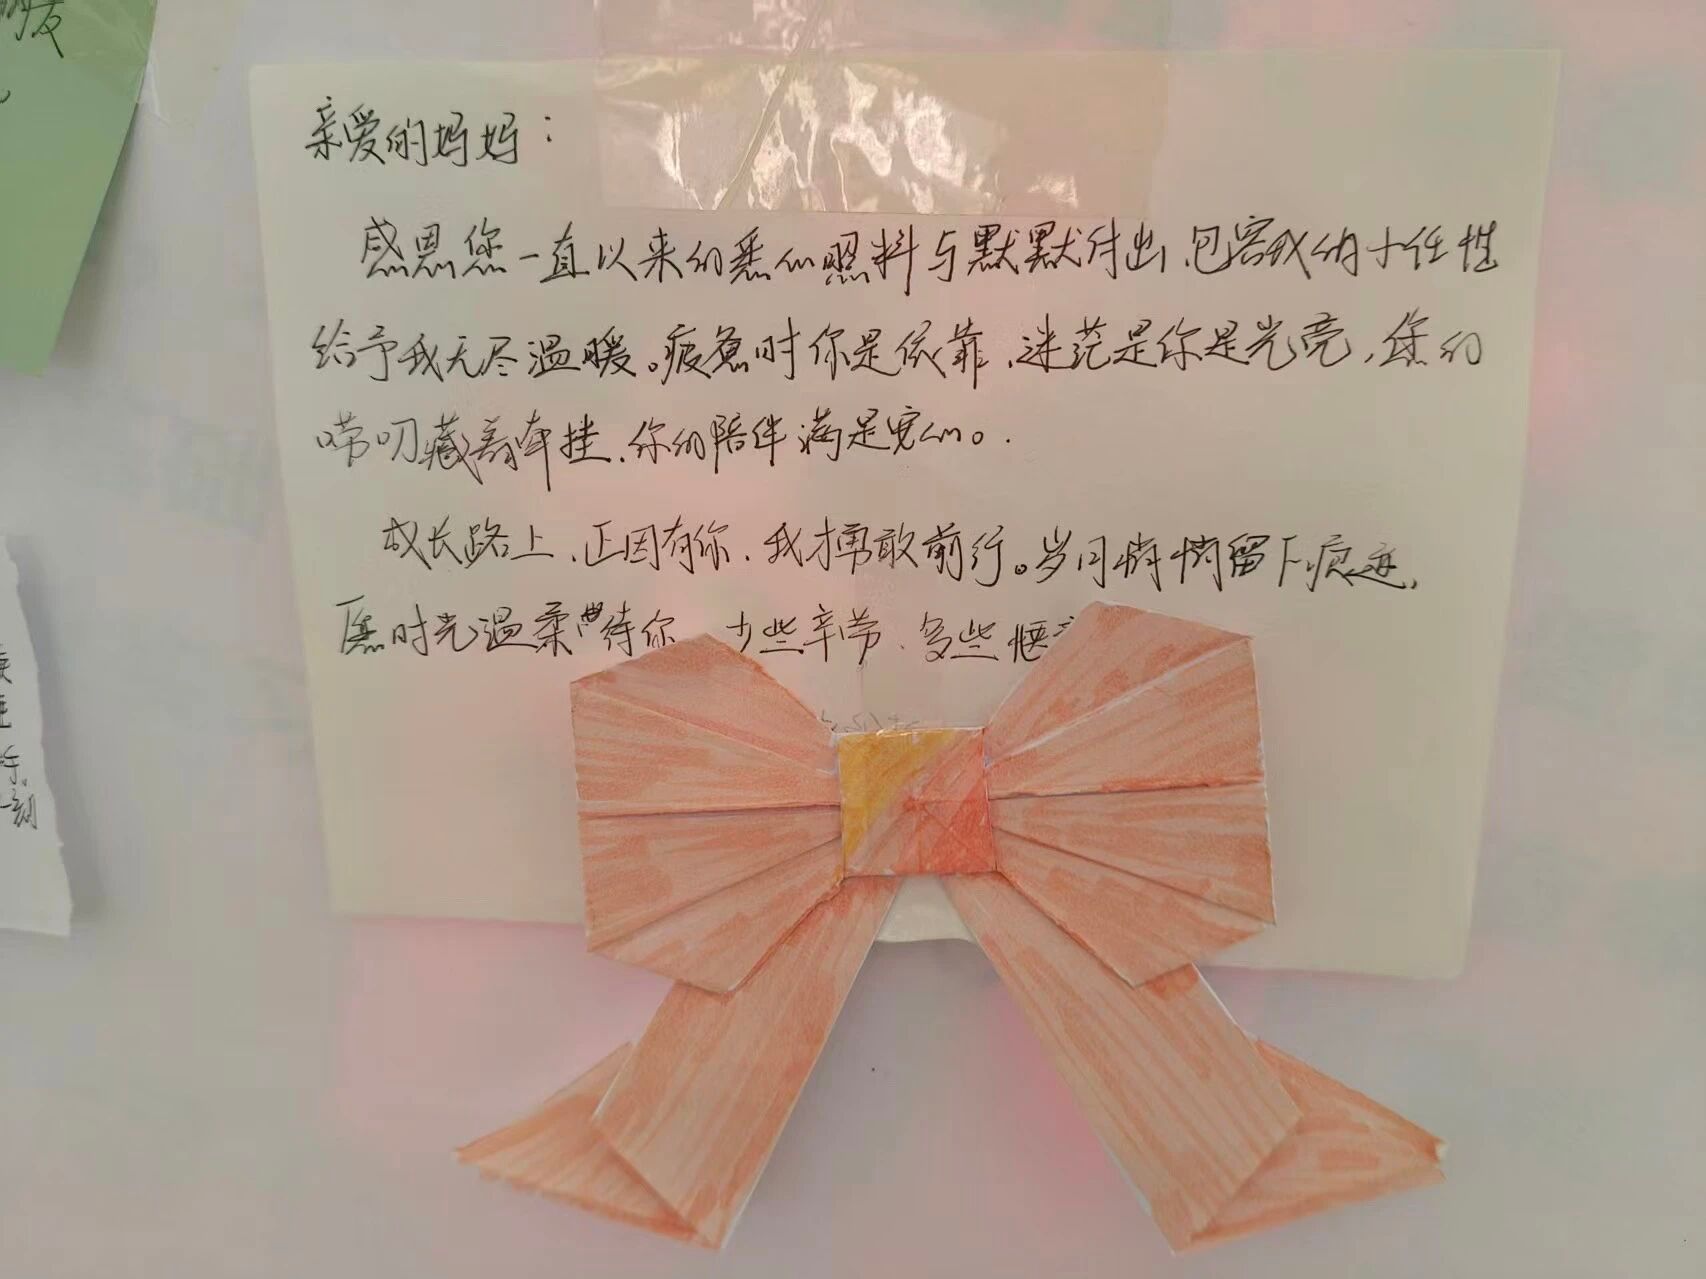 亲爱的妈妈：
感恩您一直以来的悉心照料与默默付出、包容我的小任性
给予我无尽温暖。疲惫时你是依靠、迷茫是你是光亮，您的
唠叨藏着牵挂、你的陪伴满是安心。.
成长路上、正因有你、我才勇敢前行。岁月悄悄留下痕迹、
愿时光温柔待你 少些辛劳、多些